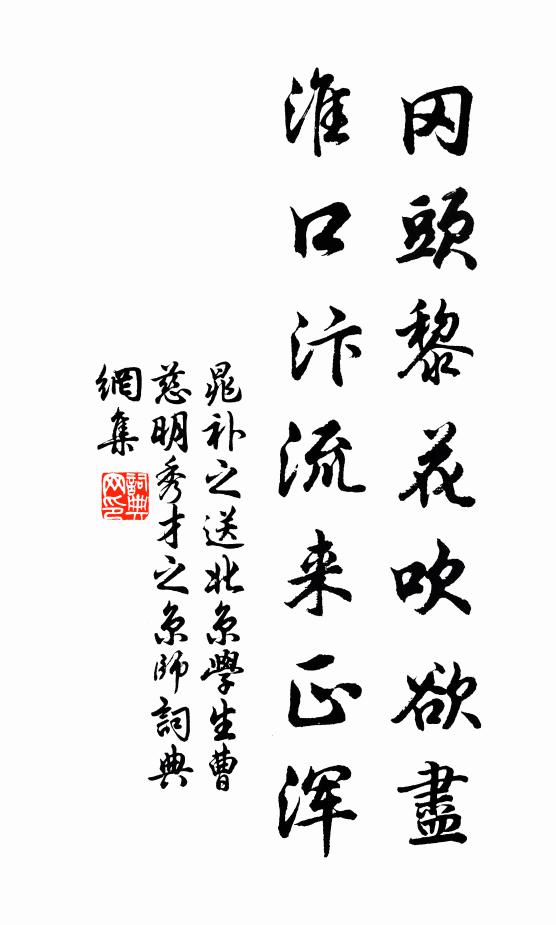 冈頭黎花吹欲盡
淮口汴流来正浑
晁补之送北京學生曹
慈明秀才之京師詞典
網集
詞典
网印